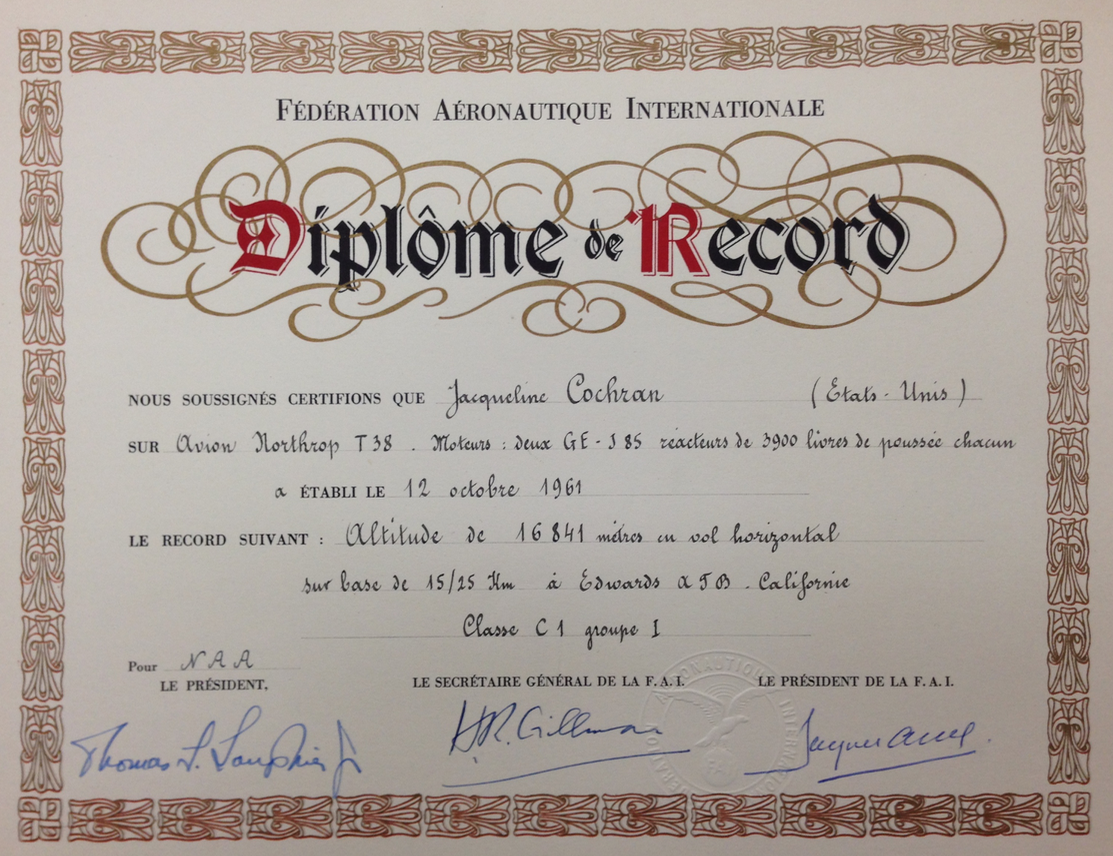 FÉDÉRATION AÉRONAUTIQUE INTERNATIONALE
Diplôme de Record
NOUS SOUSSIGNÉS CERTIFIONS QUE Jacqueline Cochran (Etats-Unis)
SUR Avion Northrop T38. Moteurs : deux GE-J85 réacteurs de 3900 livres de poussée chacun
a ÉTABLI LE 12 octobre 1961
LE RECORD SUIVANT : Altitude de 16841 mètres en vol horizontal
sur base de 15/25 Km à Edwards AFB. Californie
Classe C1 groupe I
Pour NAA
LE PRÉSIDENT, LE SECRÉTAIRE GÉNÉRAL DE LA F.A.I. LE PRÉSIDENT DE LA F.A.I.
Thomas G. Lanphier Jr H.R. Gillman Jacques Allez